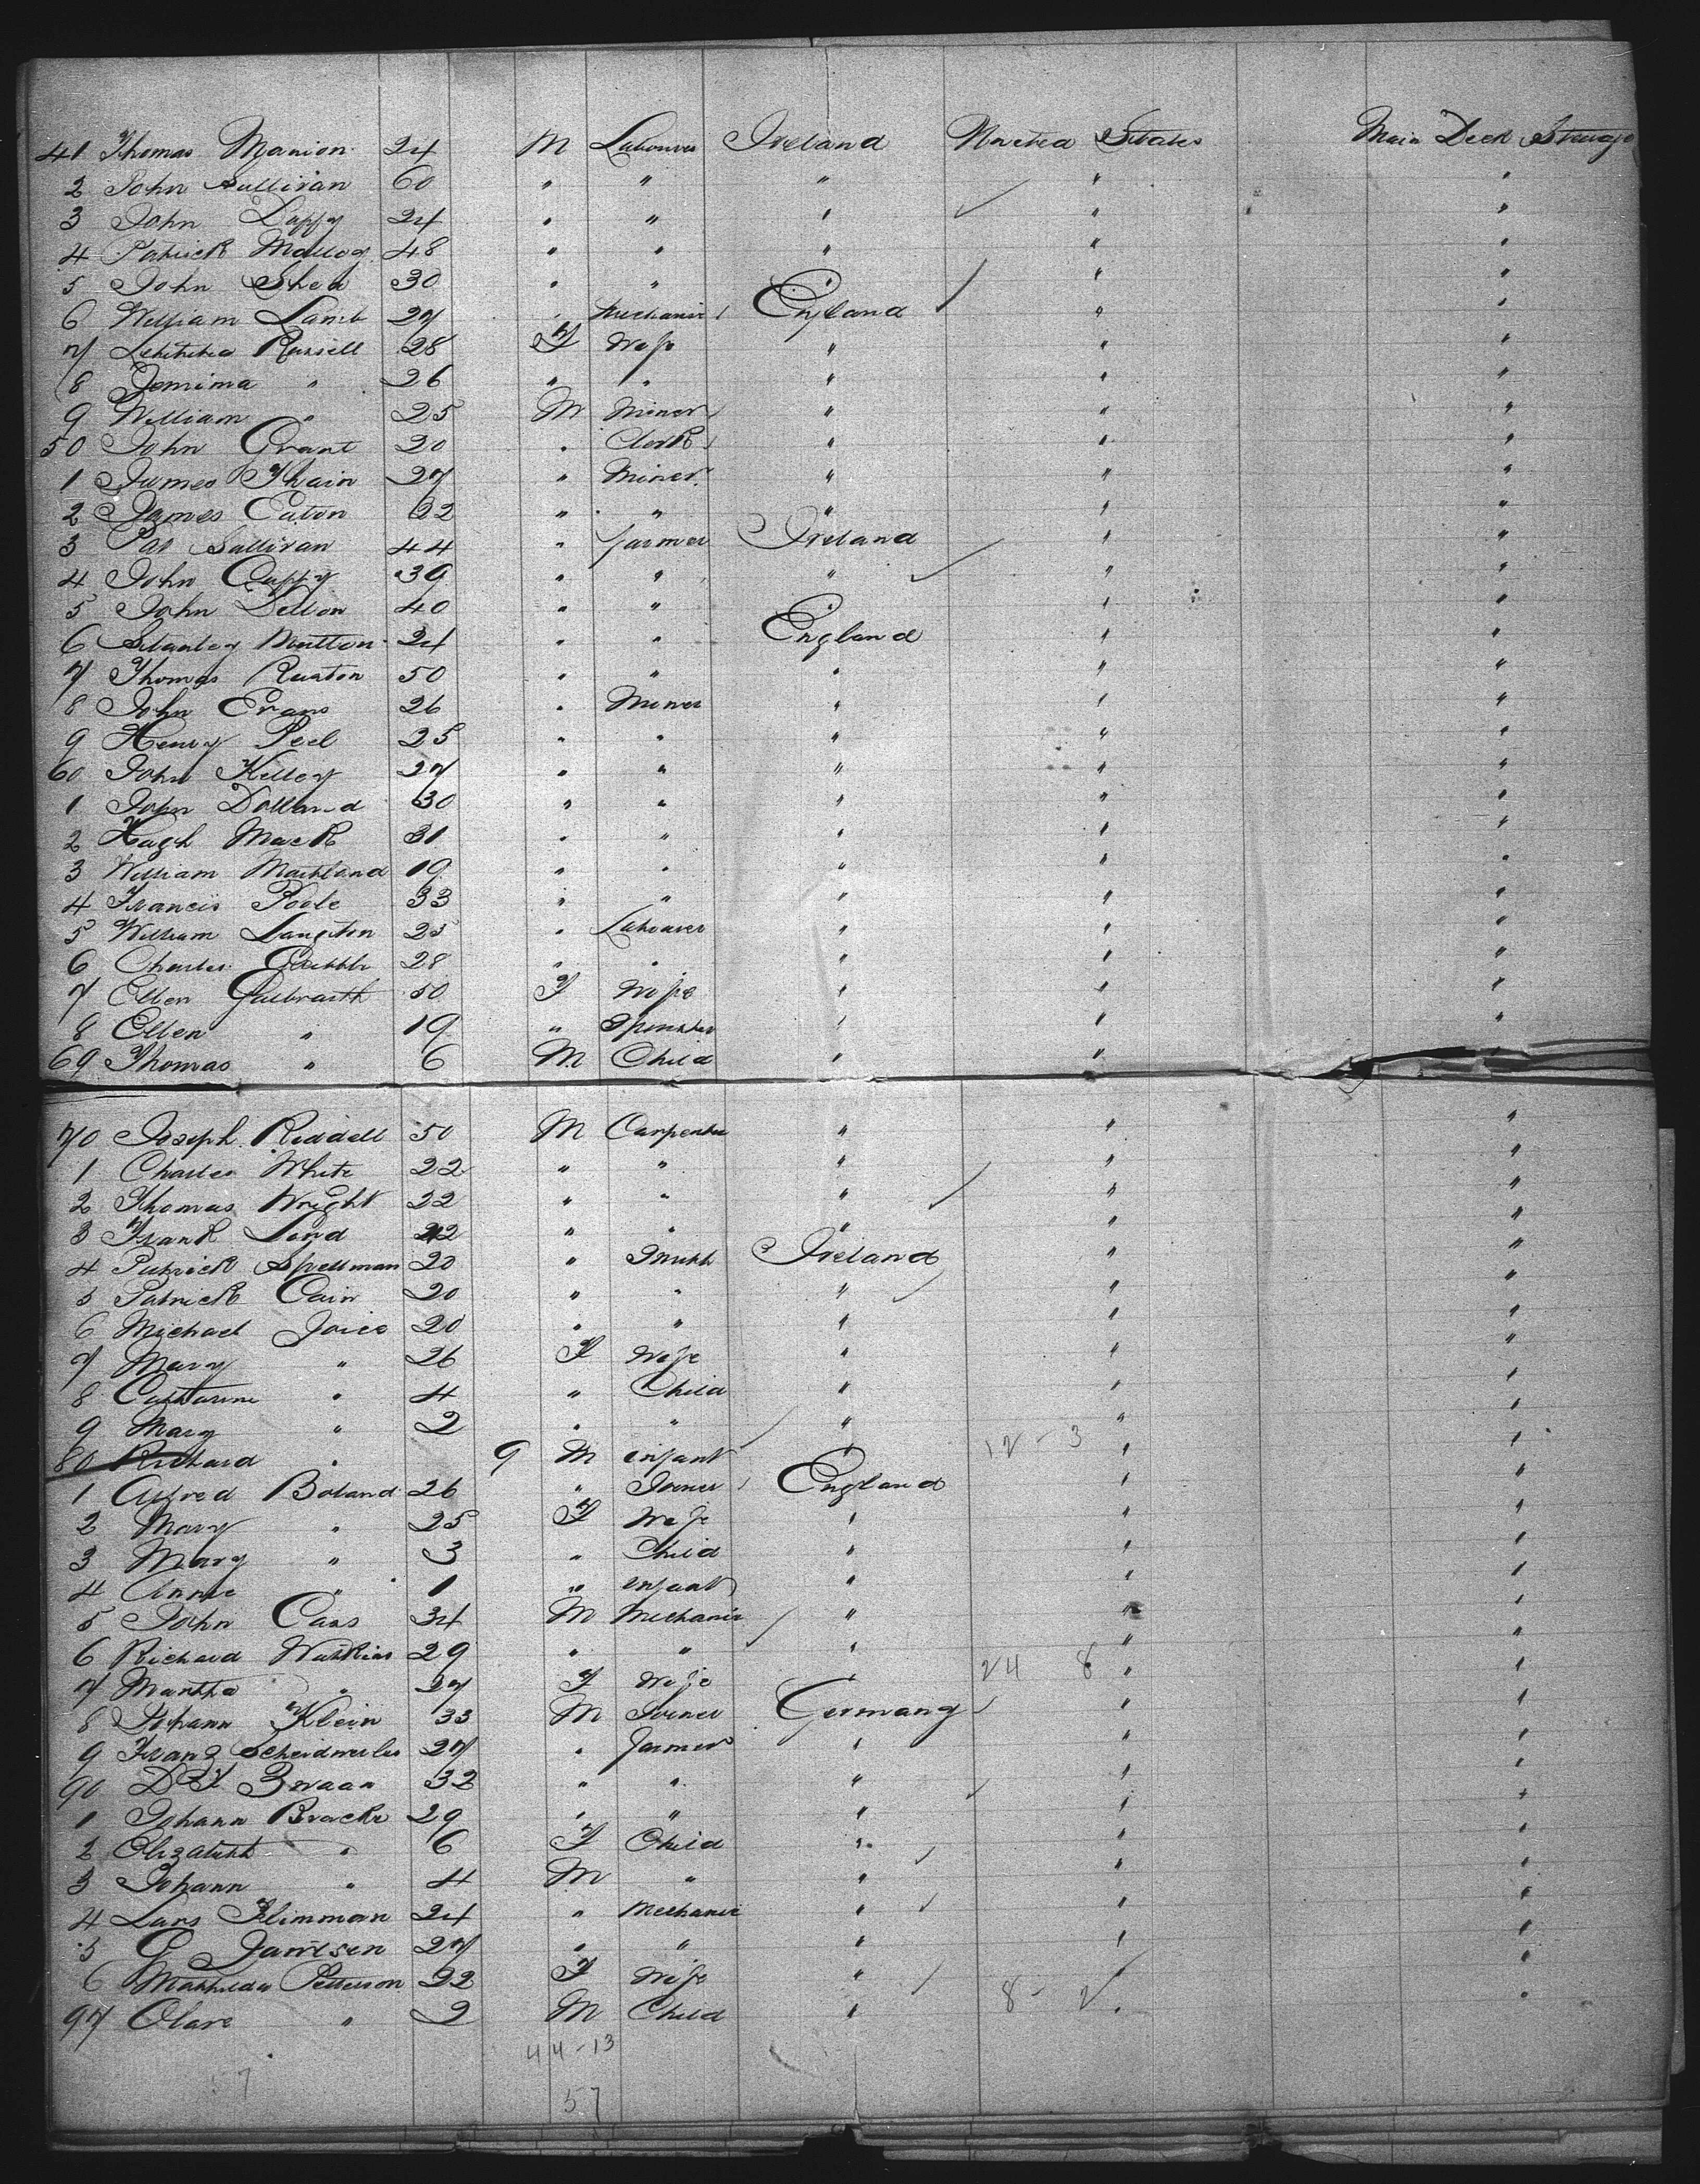 41 Thomas Manion 24 M Labourer Ireland United States Main Deck Steerage
2 John Sullivan 60 " " " " "
3 John Duffy 24 " " " " "
4 Patrick Molloy 48 " " " " "
5 John Shea 30 " " " " "
6 William Lamb 27 " Mechanic England " "
7 Russell 28 F Wife " " "
8 Jemima " 26 " " " " "
9 William " 25 M Miner " " "
50 John Grant 20 " Clerk " " "
1 James Thain 27 " Miner " " "
2 James Eaton 22 " " " " "
3 Pat Sullivan 44 " farmer Ireland " "
4 John 39 " " " " "
5 John Dillon 40 " " " " "
6 Stanley Mutton 24 " " England " "
7 Thomas Ruston 50 " " " " "
8 John Evans 26 " Miner " " "
9 Henry Peel 25 " " " " "
60 John Kelley 27 " " " " "
1 John Dolland 30 " " " " "
2 Hugh Mack 31 " " " " "
3 William Maitland 19 " " " " "
4 Francis Poole 33 " " " " "
5 William Langton 25 " Labourer " " "
6 Charles 28 " " " " "
7 Ellen Galbraith 50 F Wife " " "
8 Ellen " 19 " Spinster " " "
69 Thomas " 6 M Child " " "
70 Joseph Riddell 50 M Carpenter " " "
1 Charles White 22 " " " " "
2 Thomas Wright 22 " " " " "
3 Frank Lord 22 " " " " "
4 Patrick Spellman 20 " Smith Ireland " "
5 Patrick Cain 20 " " " " "
6 Michael Joice 20 " " " " "
7 Mary " 26 F Wife " " "
8 Catharine " 4 " Child " " "
9 Mary " 2 " " " " "
80 Richard " 9 M infant " 12 - 3 " "
1 Alfred Boland 26 " Joiner England " "
2 Mary " 25 F Wife " " "
3 Mary " 3 " Child " " "
4 Annie " 1 " infant " " "
5 John Cass 34 M Mechanic " " "
6 Richard Watkins 29 " " " " "
7 Martha " 27 F Wife " 24 8 " "
8 Johann Klein 33 M Joiner Germany " "
9 Franz Scheidweiler 27 " farmer " " "
90 D F Zwaan 32 " " " " "
1 Johann Bracke 29 " " " " "
2 Elizabeth " 6 F Child " " "
3 Johann " 4 M " " " "
4 Lars Flimman 24 " Mechanic " " "
5 G Jantsen 27 " " " " "
6 Mathilda Petterson 22 F Wife " " "
97 Olave " 2 M Child " 8 - 2 " "
44 - 13
57